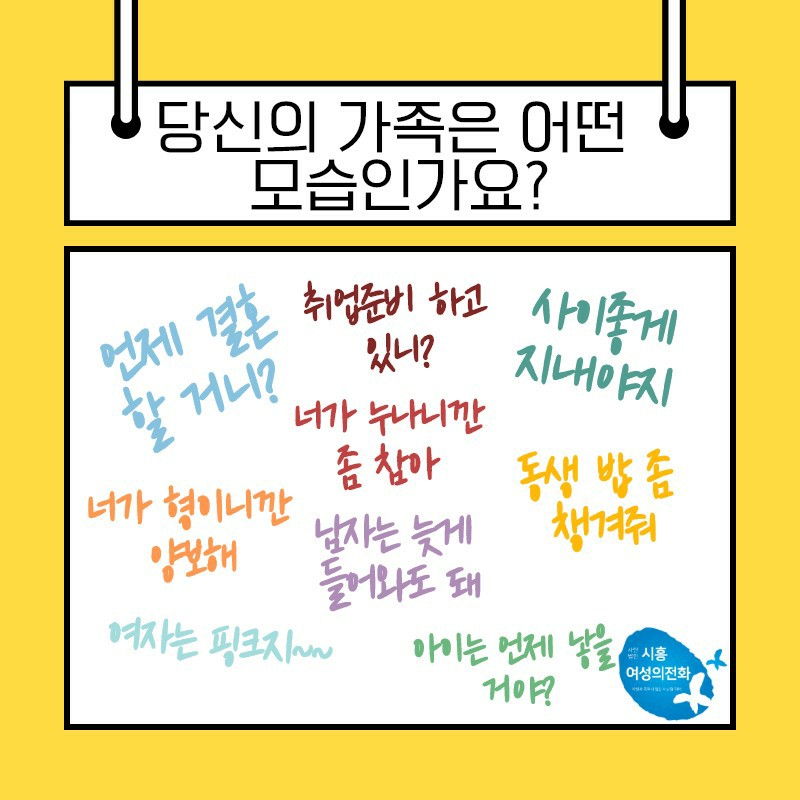 당신의 가족은 어떤
모습인가요?
언제 결혼
할 거니?
취업준비 하고
있니?
사이좋게
지내야지
너가 누나니깐
좀 참아
동생 밥 좀
챙겨줘
너가 형이니깐
양보해
남자는 늦게
들어와도 돼
여자는 핑크지~~
아이는 언제 낳을
거야?
사단
법인
시흥
여성의전화